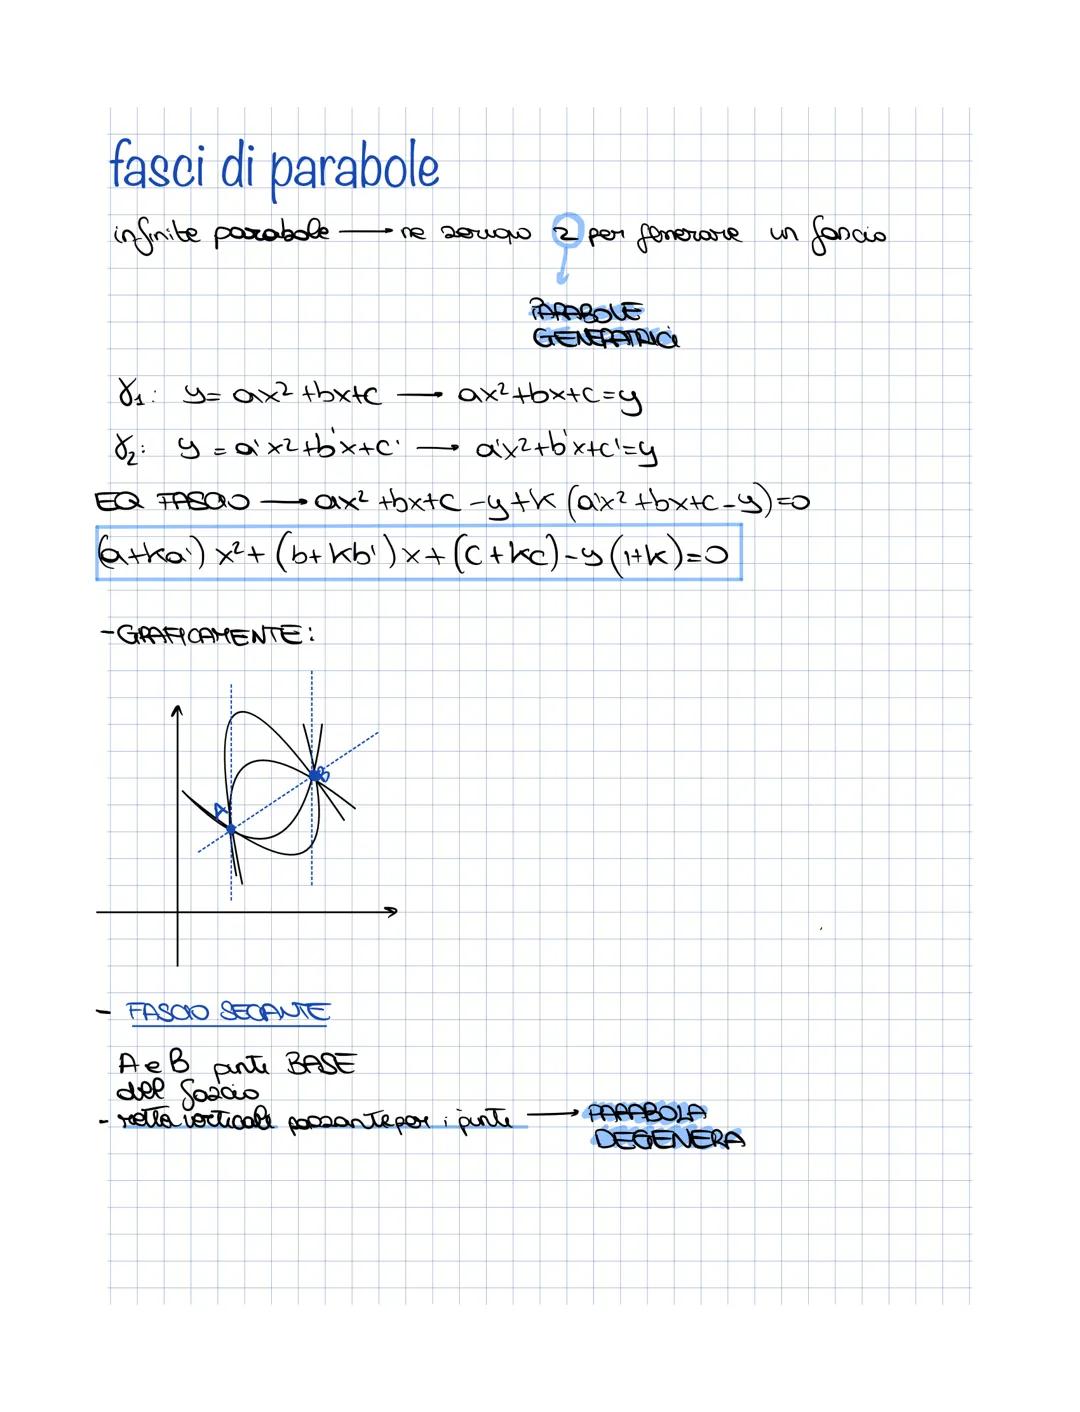 fasci di parabole
infinite parabole → ne servono 2 per generare un fascio
PARABOLE
GENERATRICI
γ₁: y = ax² + bx + c → ax² + bx + c = y
γ₂: y = a'x² + b'x + c' → a'x² + b'x + c' = y
EQ FASCIO → ax² + bx + c - y + k (a'x² + bx + c - y) = 0
(a + ka') x² + (b + kb') x + (c + kc) - y (1 + k) = 0
- GRAFICAMENTE:
B
A
- FASCIO SECANTE
A e B punti BASE
del fascio
- retta verticale passante per i punti → PARABOLA
DEGENERA